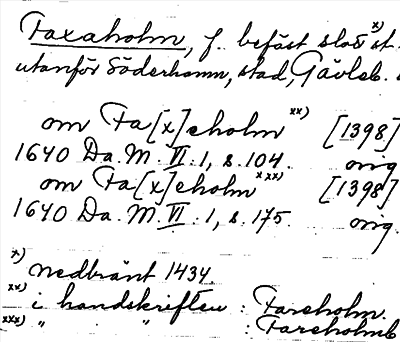 Faxaholm, f. befäst slott x) st
utanför Söderhamn, stad, Gävleb.
om Fa[x]eholm xx) [1398]
1640 Da. M. VI: 1, s. 104. orig
om Fa[x]eholm xxx) [1398]
1640 Da. M. VI: 1, s. 175. orig.
x) nedbränt 1434.
xx) i handskriften: Fareholm.
xxx) " " : Fareholmb